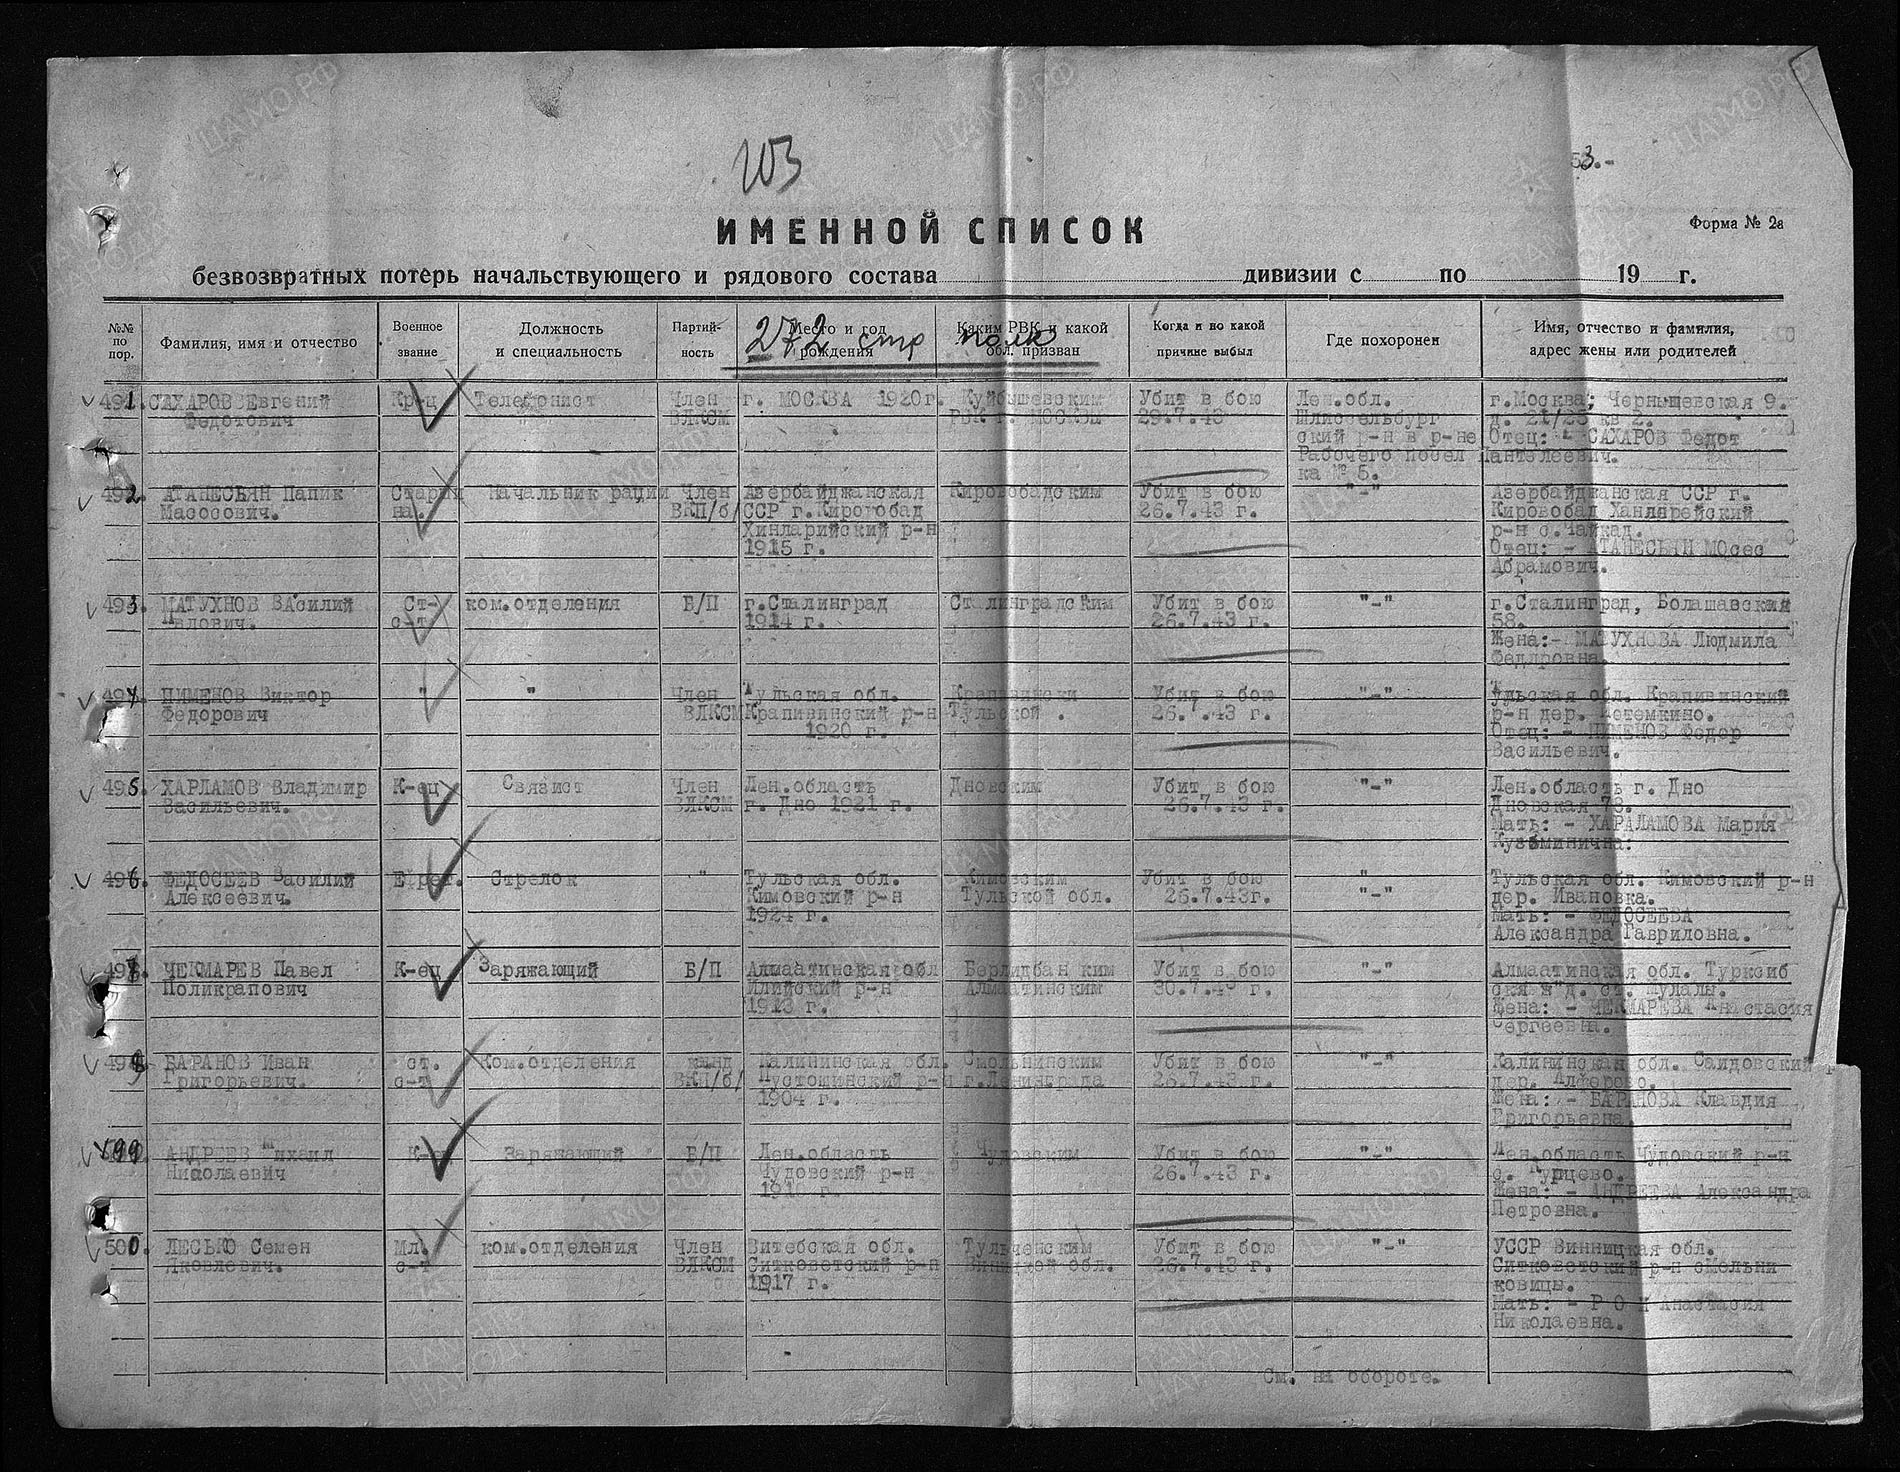 103
53.-
ИМЕННОЙ СПИСОК
Форма № 2а
безвозвратных потерь начальствующего и рядового состава дивизии с по 19 г.
№№ по пор.
Фамилия, имя и отчество
Военное звание
Должность и специальность
Партийность
Место и год рождения
Каким РВК и какой обл. призван
Когда и по какой причине выбыл
Где похоронен
Имя, отчество и фамилия, адрес жены или родителей
272 стр полк
491. САХАРОВ Евгений Кр-ц Телефонист Член г. МОСКВА 1920г. Куйбышевским Убит в бою Лен.обл. г.Москва, Чернышевская 9.
Федотович ВЛКСМ РВК г. МОСКВЫ 29.7.43 Шлиссельбург д. 21/23 кв 2.
ский р-н в р-не Отец: - САХАРОВ Федот
Рабочего посел Пантелеевич.
ка № 5.
492. АТАНЕСЬЯН Папик Старши Начальник рации Член Азербайджанская Кировобадским Убит в бою "-" Азербайджанская ССР г.
Масосович. на. ВКП/б/ ССР г.Кировобад 26.7.43 г. Кировобад Ханларейский
Хинларийский р-н р-н с.Чайкад.
1915 г. Отец: - АТАНЕСЬЯН МОсес
Абрамович.
493. МАТУХНОВ ВАсилий Ст- ком.отделения Б/П г.Сталинград Сталинградским Убит в бою "-" г.Сталинград, Болашавский
Павлович. с-т. 1914 г. 26.7.43 г. 58.
Жена:- МАТУХНОВА Людмила
Федоровна.
494. ПИМЕНОВ Виктор " " Член Тульская обл. Крапивински Убит в бою "-" Тульская обл. Крапивинский
Федорович ВЛКСМ Крапивинский р-н Тульской . 26.7.43 г. р-н дер. Потемкино.
1920 г. Отец: - ПИМЕНОВ Федор
Васильевич.
495. ХАРЛАМОВ Владимир К-ец Связист Член Лен.область Дновским Убит в бою "-" Лен.область г. Дно
Васильевич. ВЛКСМ г. Дно 1921 г. 26.7.43 г. Дновская 78.
Мать: - ХАРАЛАМОВА Мария
Кузьминична:
496. ФЕДОСЕЕВ Василий Ефрет. Стрелок " Тульская обл. Кимовским Убит в бою "-" Тульская обл. Кимовский р-н
Алексеевич. Кимовский р-н Тульской обл. 26.7.43г. дер. Ивановка.
1924 г. Мать: - ФЕДОСЕЕВА
Александра Гавриловна.
497. ЧЕКМАРЕВ Павел К-ец Заряжающий Б/П Алмаатинская обл Берлидбан ким Убит в бою "-" Алмаатинская обл. Турксиб
Поликрапович Илийский р-н Алмаатинским 30.7.43 г. ская ж"д. ст. Мулалы.
1913 г. Жена: - ЧЕКМАРЕВА Анастасия
Сергеевна.
498. БАРАНОВ Иван ст. Ком.отделения канд Калининская обл. Смольнинским Убит в бою "-" Калининская обл. Сандовский р
Григорьевич. с-т ВКП/б/ Пустошинский р-н г.Ленинграда 26.7.43 г. дер. Алферово.
1904 г. Жена: - БАРАНОВА Клавдия
Григорьевна
499. АНДРЕЕВ Михаил К-ец Заряжающий Б/П Лен.область Чудовским Убит в бою "-" Лен.область Чудовский р-н
Николаевич Чудовский р-н 26.7.43 г. с. Курцево.
Жена: - АНДРЕЕВА Александра
Петровна.
500. ЛЕСЬКО Семен Мл. ком.отделения Член Витебская обл. Тульченским Убит в бою "-" УССР Винницкая обл.
Яковлевич. с-т ВЛКСМ Ситковетский р-н Виницкой обл. 26.7.43 г. Ситковетский р-н смельни
1917 г. ковицы.
Мать: - Анастасия
Николаевна.
См. на обороте.